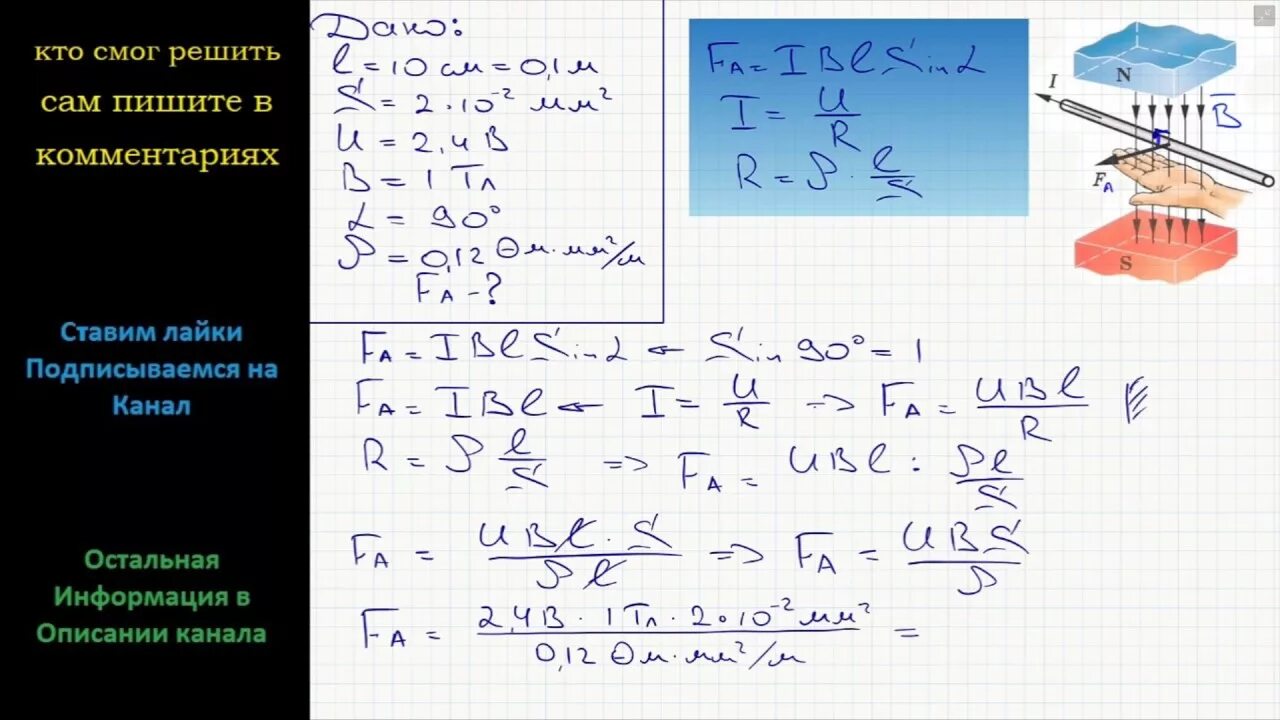 кто смог решить
сам пишите в
комментариях
Ставим лайки
Подписываемся на
Канал
Остальная
Информация в
Описании канала
Дано:
l = 10 см = 0,1 м
S = 2 · 10⁻² мм²
U = 2,4 В
B = 1 Тл
α = 90°
ρ = 0,12 Ом·мм²/м
F_A - ?
F_A = I B l Sin α
I = U/R
R = ρ · l/S
N
I
B
F_A
S
F_A = I B l Sin α ← Sin 90° = 1
F_A = I B l ← I = U/R => F_A = UBl/R
R = ρ l/S => F_A = UBl : ρl/S
F_A = UBl · S/ρl => F_A = UBS/ρ
F_A = 2,4 В · 1 Тл · 2 · 10⁻² мм² / 0,12 Ом·мм²/м =